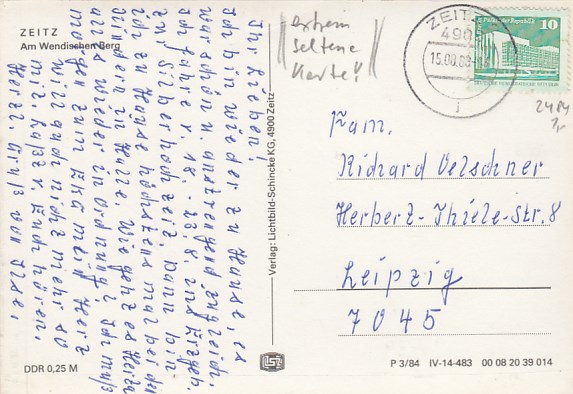 ZEITZ
Am Wendischen Berg
Ihr Lieben!
Ich bin wieder zu Hause, es
war schön u. anstrengend zugleich.
Ich fahre v. 18.-23.8. ins Erzgeb.
zur Silberhochzeit, dann bin
ich zu Hause höchstens mal bei den
Kindern in Halle. Wie geht es Herta
alles wieder in Ordnung? Ich muß
morgen zum EKG mein Herz
will auch nicht mehr so
mit. Laßt v. Euch hören.
Herzl. Gruß von Ilse.
DDR 0,25 M
Verlag: Lichtbild-Schincke KG, 4900 Zeitz
extrem
seltene
Karte!
ZEITZ
490
15.08.
DEUTSCHE DEMOKRATISCHE REPUBLIK
10
2484
Fam.
Richard Oelschner
Herbert-Thiele-Str. 8
Leipzig
7045
P 3/84 IV-14-483 00 08 20 39 014